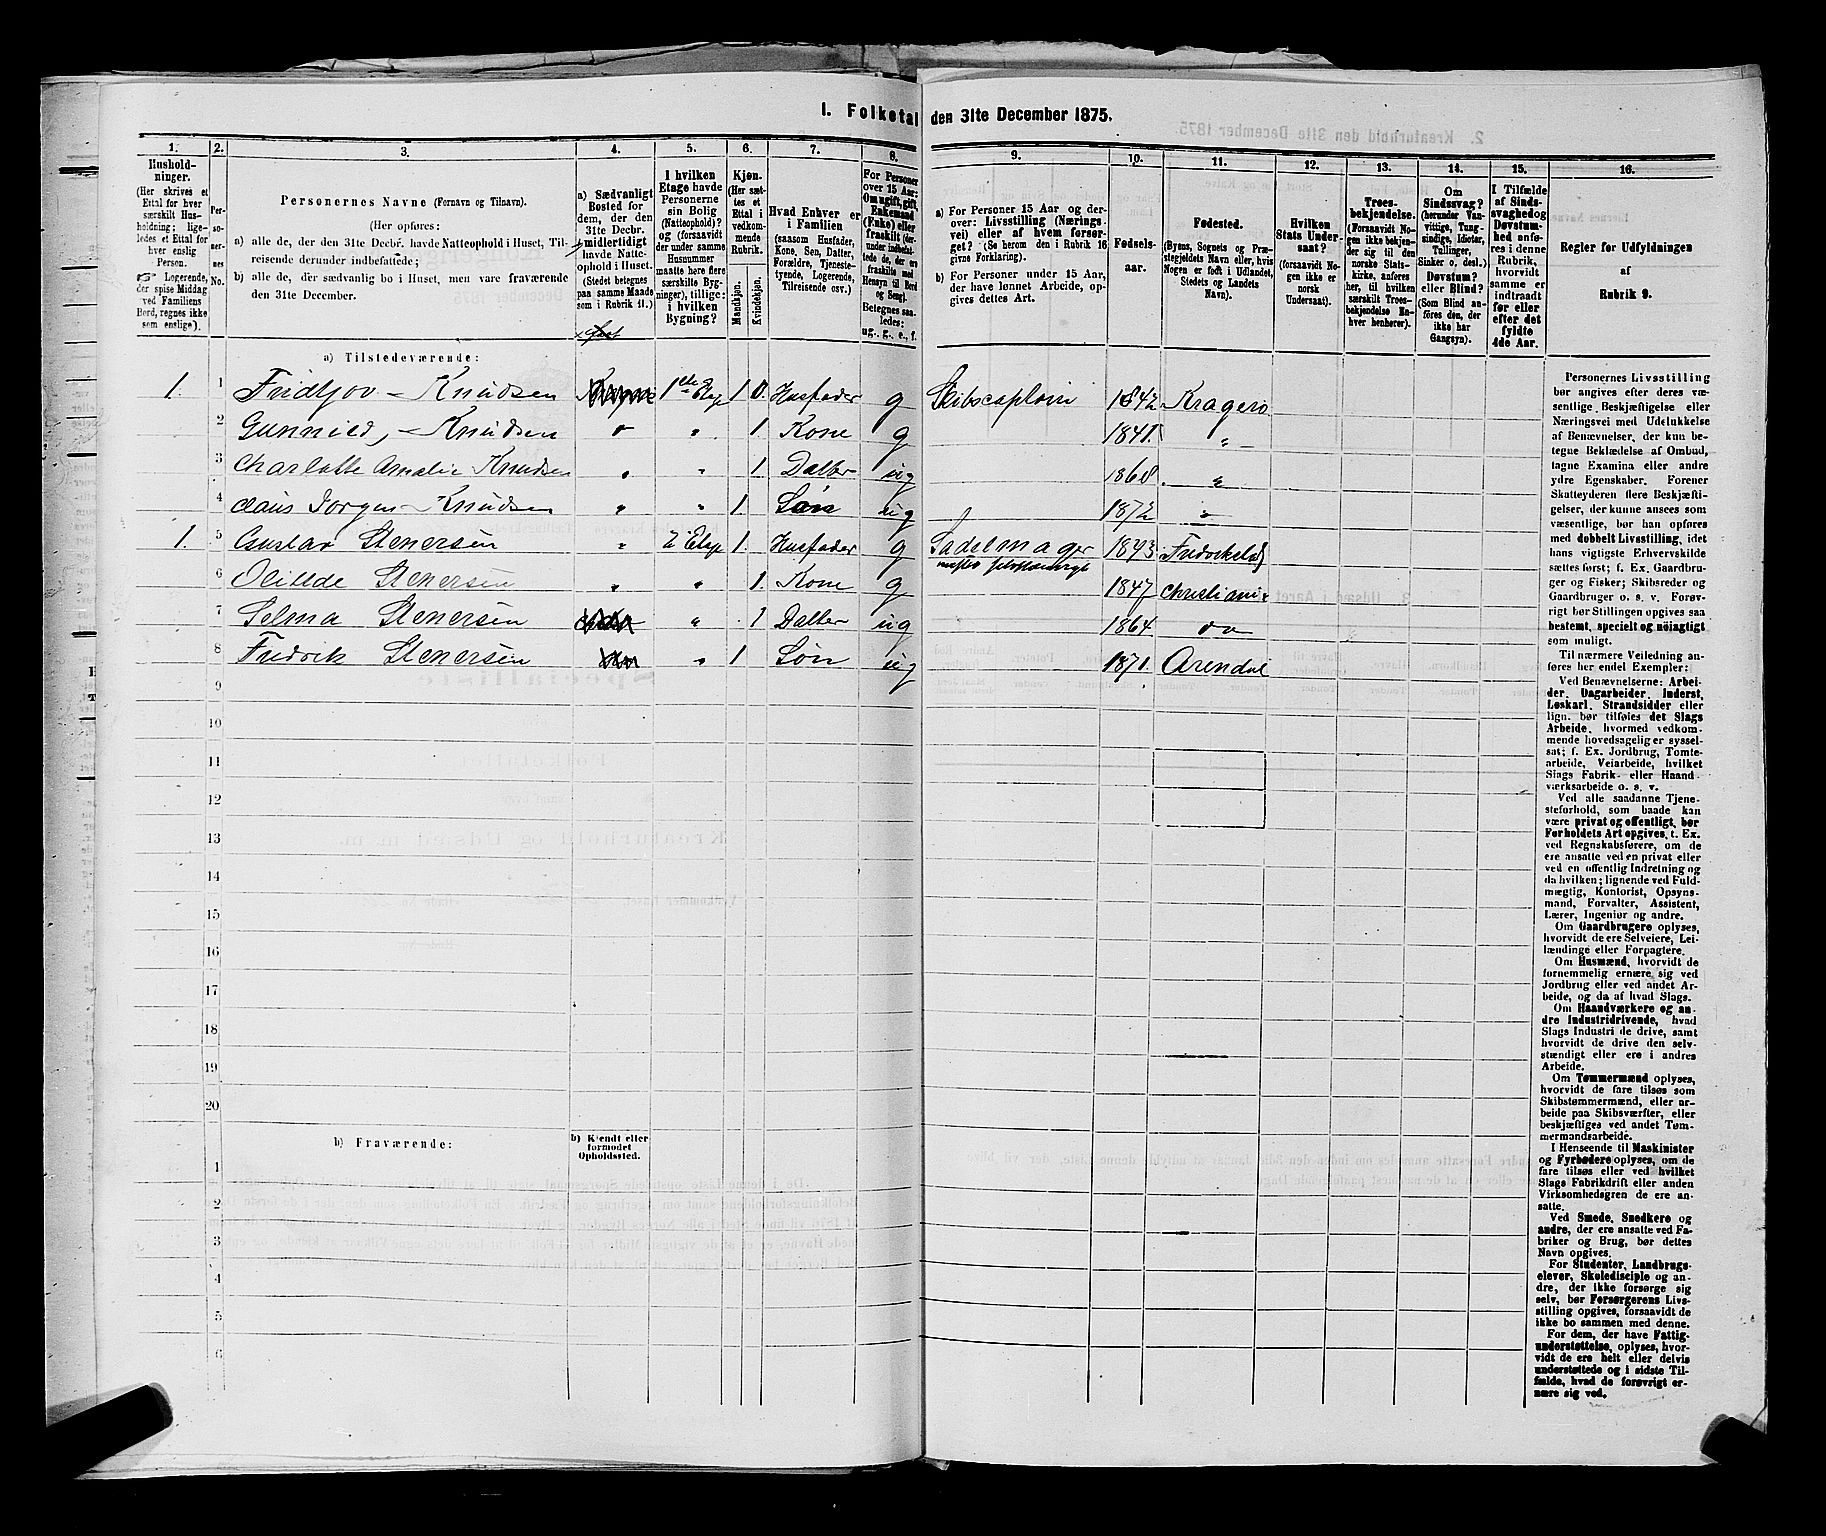 1. Folketal den 31te December 1875.
1. 2. 3. 4. 5. 6. 7. 8. 9. 10. 11. 12. 13. 14. 15. 16.
Hushold-
ninger.
(Her skrives et
Ettal for hver
særskilt Hus-
holdning; lige-
ledes et Ettal for
hver enslig
Person.
☞ Logerende,
der spise Middag
ved Familiens
Bord, regnes ikke
som enslige).
Per-
so-
ner-
nes
No.
Personernes Navne (Fornavn og Tilnavn).
(Her opføres:
a) alle de, der den 31te Decbr. havde Natteophold i Huset, Til-
reisende derunder indbefattede;
b) alle de, der sædvanlig bo i Huset, men vare fraværende
den 31te December.
a) Sædvanligt
Bosted for
dem, der den
31te Decbr.
midlertidigt
havde Natte-
ophold i Huset.
(Stedet betegnes
paa samme Maade
som i Rubrik 11.)
I hvilken
Etage havde
Personerne
sin Bolig
(Natteophold)?
og (forsaavidt
der under samme
Husnummer
maatte høre flere
særskilte Byg-
ninger), tillige:
i hvilken
Bygning?
Kjøn.
(Her sæt-
tes et
Ettal i
vedkom-
mende
Rubrik.
Mandkjøn.
Kvindekjøn.
Hvad Enhver er
i Familien
(saasom Husfader,
Kone, Søn, Datter,
Forældre, Tjeneste-
tyende, Logerende,
Tilreisende osv.)
For Personer
over 15 Aar:
Om ugift, gift,
Enkemand
(Enke) eller
fraskilt (der-
under indbefat-
tede de, der ere
fraskilte med
Hensyn til Bord
og Seng).
Betegnes saa-
ledes:
ug., g., e., f.
a) For Personer 15 Aar og der-
over: Livsstilling (Nærings-
vei) eller af hvem forsør-
get? (Se herom den i Rubrik 16
givne Forklaring).
b) For Personer under 15 Aar,
der have lønnet Arbeide, op-
gives dettes Art.
Fødsels-
aar.
Fødested.
(Byens, Sognets og Præ-
stegjeldets Navn eller, hvis
Nogen er født i Udlandet,
Stedets og Landets
Navn).
Hvilken
Stats Under-
saat?
(forsaavidt No-
gen ikke er
norsk
Undersaat).
Troes-
bekjendelse.
(Forsaavidt No-
gen ikke bekjen-
der sig til den
norske Stats-
kirke, anføres
her, til hvilken
særskilt Troes-
bekjendelse En-
hver henhører).
Om
Sindssvag?
(herunder Van-
vittige, Tung-
sindige, Idioter,
Tullinger,
Sinker o. desl.)
Døvstum?
eller Blind?
(Som Blind an-
føres den, der
ikke har
Gangsyn).
I Tilfælde
af Sinds-
svaghed og
Døvstum-
hed anfø-
res i denne
Rubrik,
hvorvidt
samme er
indtraadt
før eller
efter det
fyldte
4de Aar.
Regler for Udfyldningen
af
Rubrik 9.
a) Tilstedeværende:
1. 1 Fridtjov - Knudsen 1ste Etag 1 0. Husfader g Skibscaptain 1842 Kragerø
2 Gunnild, - Knudsen " " 1. Kone g 1841. "
3 Charlotte Amalie Knudsen " " 1 Datter ug 1868. "
4 Claus Jorgen - Knudsen " " 1. Søn ug 1872 "
1. 5 Gustav Stenersen " 2 Etage 1. Husfader g Sadelmager 1843. Fredrikshald
6 Olittde Stenersen " " 1. Kone g 1847 Christiania
7 Selma Stenersen " 1 Datter ug 1864 do
8 Fredrik Stenersen " 1 Søn ug 1871. Arendal
9
10
11
12
13
14
15
16
17
18
19
20
b) Fraværende:
b) Kjendt eller
formodet
Opholdssted.
1
2
3
4
5
6
Personernes Livsstilling
bør angives efter deres væ-
sentlige Beskjæftigelse eller
Næringsvei med Udelukkelse
af Benævnelser, der kun be-
tegne Beklædelse af Ombud,
tagne Examina eller andre
ydre Egenskaber. Forener
Skatteyderen flere Beskjæfti-
gelser, der kunne ansees som
væsentlige, bør han opføres
med dobbelt Livsstilling, idet
hans vigtigste Erhvervskilde
sættes først; f. Ex. Gaardbru-
ger og Fisker; Skibsreder og
Gaardbruger o. s. v. Forøv-
rigt bør Stillingen opgives saa
bestemt, specielt og nøiagtigt
som muligt.
Til nærmere Veiledning an-
føres her endel Exempler:
Ved Benævnelserne: Arbei-
der, Dagarbeider, Inderst,
Løskarl, Strandsidder eller
lign. bør tilføies det Slags
Arbeide, hvormed vedkom-
mende hovedsagelig er syssel-
sat; f. Ex. Jordbrug, Tomte-
arbeide, Veiarbeide, hvilket
Slags Fabrik- eller Haand-
værksarbeide o. s. v.
Ved alle saadanne Tjene-
steforhold, som baade kan
være privat og offentligt, bør
Forholdets Art opgives, t. Ex.
ved Regnskabsførere, om de
ere ansatte ved en privat eller
ved en offentlig Indretning og
da hvilken; lignende ved Fuld-
mægtig, Kontorist, Opsyns-
mand, Forvalter, Assistent,
Lærer, Ingeniør og andre.
Om Gaardbrugere oplyses,
hvorvidt de ere Selveiere, Lei-
lændinge eller Forpagtere.
Om Husmænd, hvorvidt de
fornemmelig ernære sig ved
Jordbrug eller ved andet Ar-
beide, og da af hvad Slags.
Om Haandværkere og an-
dre Industridrivende, hvad
Slags Industri de drive, samt
hvorvidt de drive den selv-
stændigt eller ere i andres
Arbeide.
Om Tømmermænd oplyses,
hvorvidt de fare tilsøs som
Skibstømmermænd, eller ar-
beide paa Skibsværfter, eller
beskjæftiges ved andet Tøm-
mermandsarbeide.
I Henseende til Maskinister
og Fyrbødere oplyses, om de
fare tilsøs eller ved hvilket
Slags Fabrikdrift eller anden
Virksomhedsgren de ere an-
satte.
Ved Smede, Snedkere og
andre, der ere ansatte ved Fa-
briker og Brug, bør dettes
Navn opgives.
For Studenter, Landbrugs-
elever, Skoledisciple og an-
dre, der ikke forsørge sig
selv, bør Forsørgerens Livs-
stilling opgives, forsaavidt de
ikke bo sammen med denne.
For dem, der have Fattig-
understøttelse, oplyses, hvor-
vidt de ere helt eller delvis
understøttede og i sidste Til-
fælde, hvad de forøvrigt er-
nære sig ved.